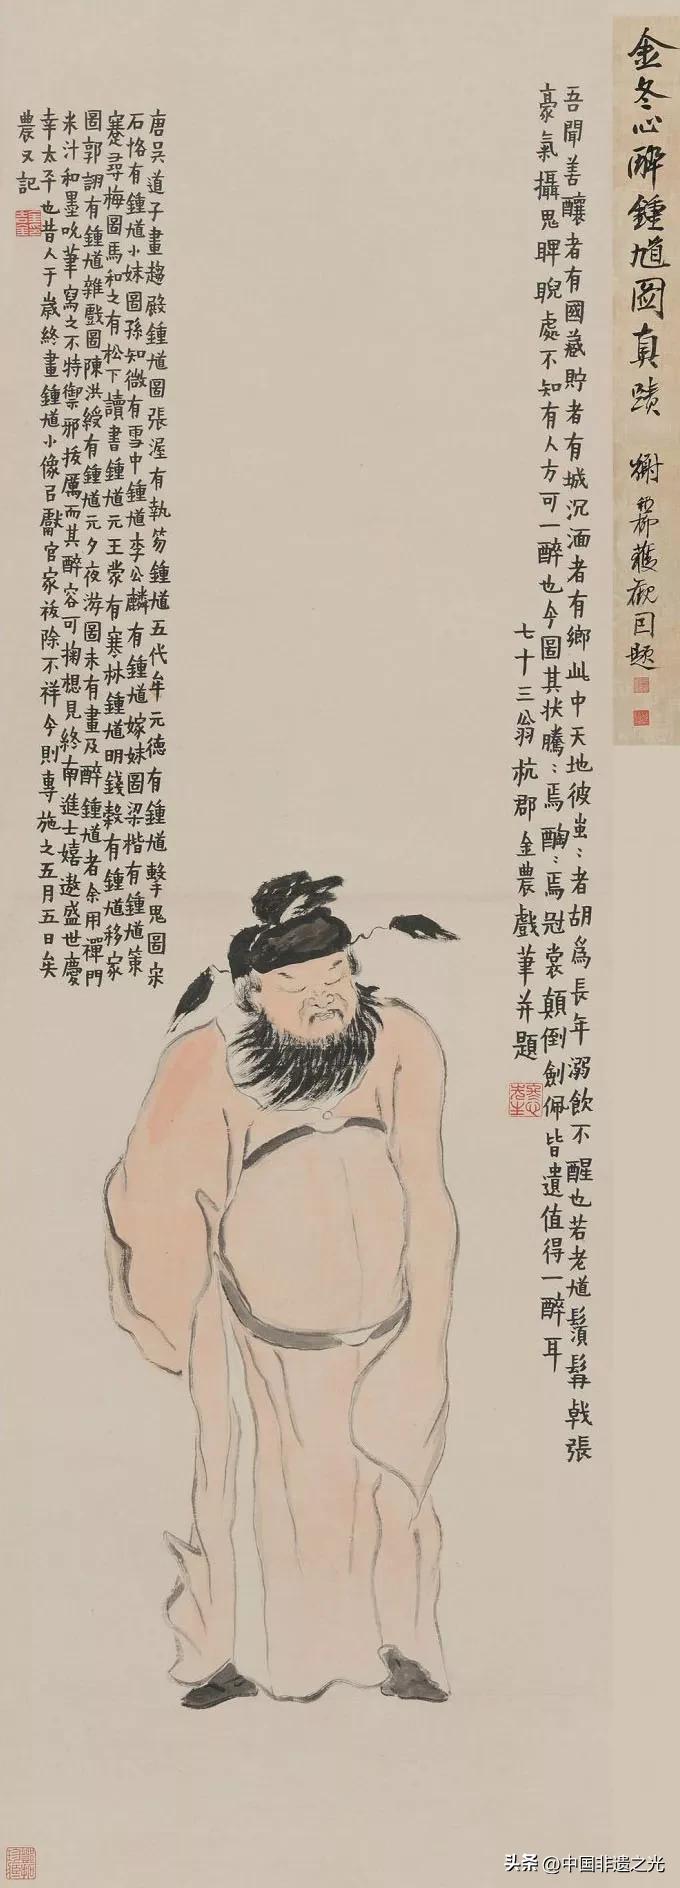 金冬心醉鍾馗圖真蹟
獲觀因題
吾聞善釀者有國藏貯者有城沉湎者有鄉此中天地彼蚩〻者胡為長年溺飲不醒也若老馗鬚髯戟張
豪氣攝鬼睥睨處不知有人方可一醉也今圖其狀騰〻焉醄〻焉冠裳顛倒劍佩皆遺值得一醉耳
七十三翁杭郡金農戲筆并題
唐吳道子畫趨殿鍾馗圖張渥有執笏鍾馗五代牟元德有鍾馗擊鬼圖宋
石恪有鍾馗小妹圖孫知微有雪中鍾馗李公麟有鍾馗嫁妹圖梁楷有鍾馗策
蹇尋梅圖馬和之有松下讀書鍾馗元王蒙有寒林鍾馗明錢穀有鍾馗移家
圖郭詡有鍾馗雜戲圖陳洪綬有鍾馗元夕夜游圖未有畫及醉鍾馗者余用禪門
米汁和墨吮筆寫之不特御邪拔厲而其醉容可掬想見終南進士嬉遨盛世慶
幸太平也昔人于歲終畫鍾馗小像㠯獻官家祓除不祥今則專施之五月五日矣
農又記
头条 @中国非遗之光